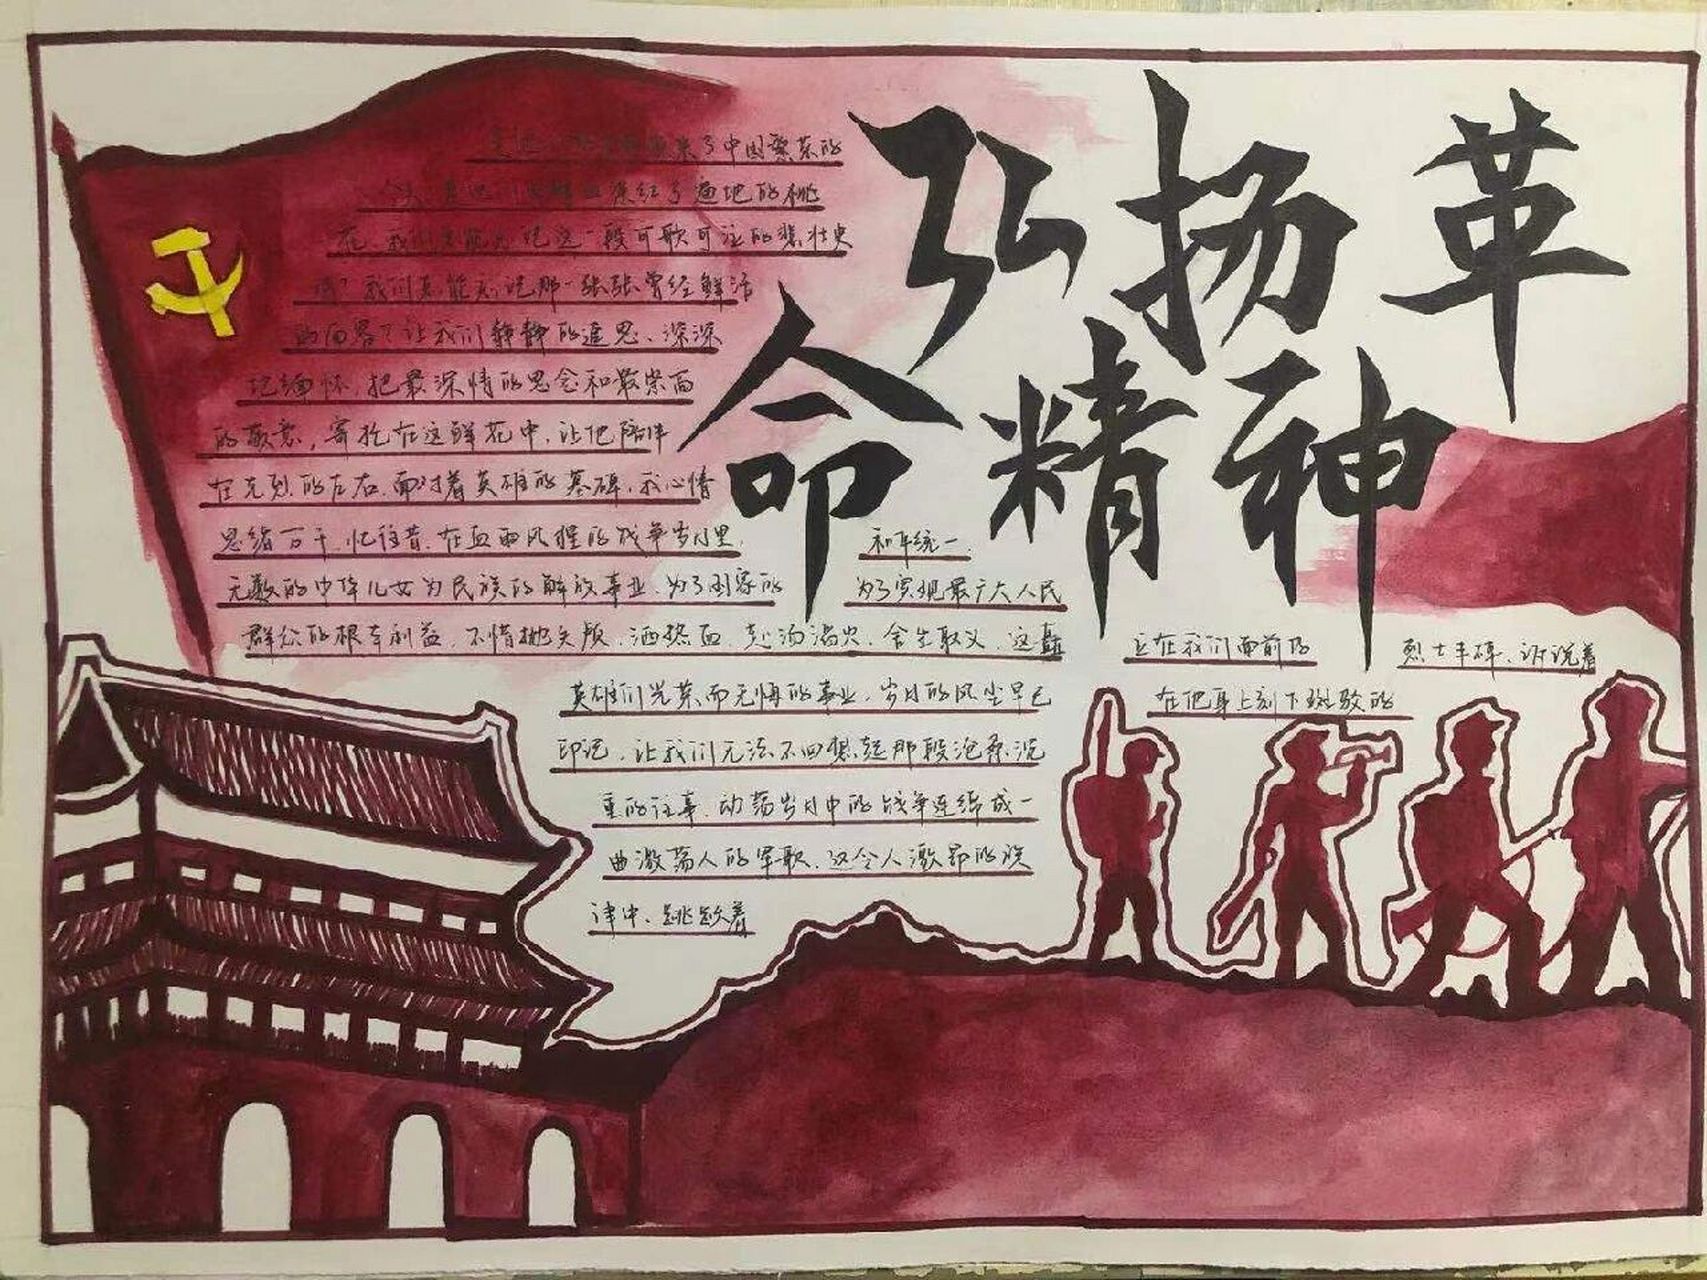 弘扬革
命精神
来了中国繁荣的
染红了遍地的桃
花,我们怎能忘记这一段可歌可泣的悲壮史
我们怎能忘记那一张张曾经鲜活
的面容?让我们静静的追思、深深
缅怀,把最深情的思念和最崇高
的敬意,寄托在这鲜花中,让他陪伴
在先烈的左右,面对着英雄的墓碑,我心情
思绪万千,忆往昔,在血雨风腥的战争岁月里,
和平统一,
无数的中华儿女为民族的解放事业,为了国家的
为了实现最广大人民
群众的根本利益,不惜抛头颅,洒热血,赴汤蹈火,舍生取义,这矗
立在我们面前的
烈士丰碑,诉说着
英雄们光荣而无悔的事业,岁月的风尘早已
在他身上刻下斑驳的
印记,让我们无法不回想起那段沧桑沉
重的往事,动荡岁月中的战争连绵成一
曲激荡人的军歌,这令人激昂的旋
律中,跳跃着